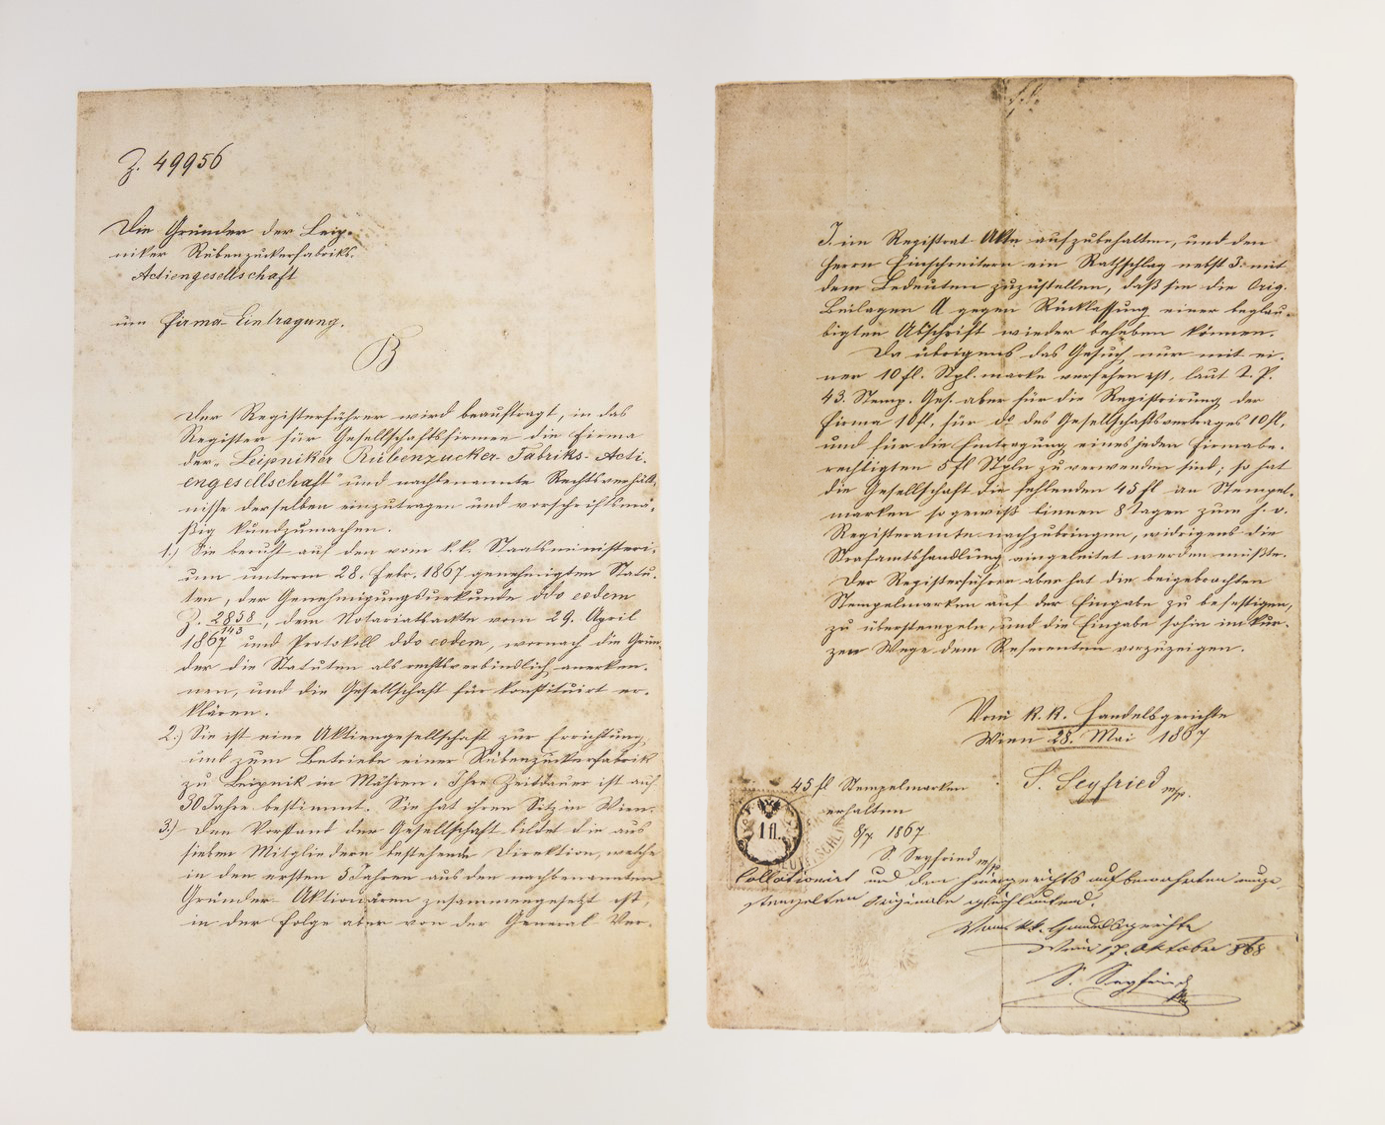 Z. 49956
Die Gründer der Leip-
niker Rübenzuckerfabriks-
Actiengesellschaft
um Firma Eintragung.
B
Der Registerführer wird beauftragt, in das
Register für Gesellschaftsfirmen die Firma
der „Leipniker Rübenzucker-Fabriks-Acti-
engesellschaft" und nachbenannte Rechtsverhält-
nisse derselben einzutragen und vorschriftsmä-
ßig kundzumachen.
1.) Sie beruht auf den vom k. k. Staatsministeri-
um unterm 28. Febr. 1867 genehmigten Statu-
ten, der Genehmigungsurkunde ddo eodem
Z. 2858/143, dem Notariatsakte vom 29. April
1867 und Protokoll ddo eodem, wornach die Grün-
der die Statuten als rechtsverbindlich anerken-
nen, und die Gesellschaft für konstituirt er-
klären.
2.) Sie ist eine Aktiengesellschaft zur Errichtung
und zum Betriebe einer Rübenzuckerfabrik
zu Leipnik in Mähren. Ihre Zeitdauer ist auf
30 Jahre bestimmt. Sie hat ihren Sitz in Wien.
3.) Den Vorstand der Gesellschaft bildet die aus
sieben Mitgliedern bestehende Direktion, welche
in den ersten 3 Jahren aus den nachbenannten
Gründer-Aktionären zusammengesetzt ist,
in der Folge aber von der General-Ver-
J. im Registrat-Akte aufzubehalten, und den
Herrn Einschreitern ein Rathschlag nebst 3. mit
dem Bedeuten zuzustellen, daß sie die Orig.
Beilagen A gegen Rücklassung einer beglau-
bigten Abschrift wieder beheben können.
Da übrigens das Gesuch nur mit ei-
ner 10 fl. Stpl. marke versehen ist, laut T. P.
43. Stemp. Ges. aber für die Registrirung der
Firma 10 fl, für do des Gesellschaftsvertrages 10 fl,
und für die Eintragung eines jeden Firmabe-
rechtigten 5 fl Stpln zu verwenden sind; so hat
die Gesellschaft die fehlenden 45 fl an Stempel-
marken so gewiß binnen 8 Tagen zum h. o.
Registeramte nachzubringen, widrigens die
Strafamtshandlung eingeleitet werden müßte.
Der Registerführer aber hat die beigebrachten
Stempelmarken auf der Eingabe zu befestigen,
zu überstempeln, und die Eingabe sohin im kur-
zen Wege dem Referenten vorzuzeigen.
Vom k. k. Handelsgerichte
Wien 28. Mai 1867
S. Seyfried m/p.
45 fl Stempelmarken
erhalten
8/7 1867
S. Seyfried m/p
1 fl.
Collationirt und dem hiergerichts aufbewahrten
stempelten Originale gleichlautend.
Vom k. k. Handelsgerichte
Wien 17. Oktober 868
S. Seyfried